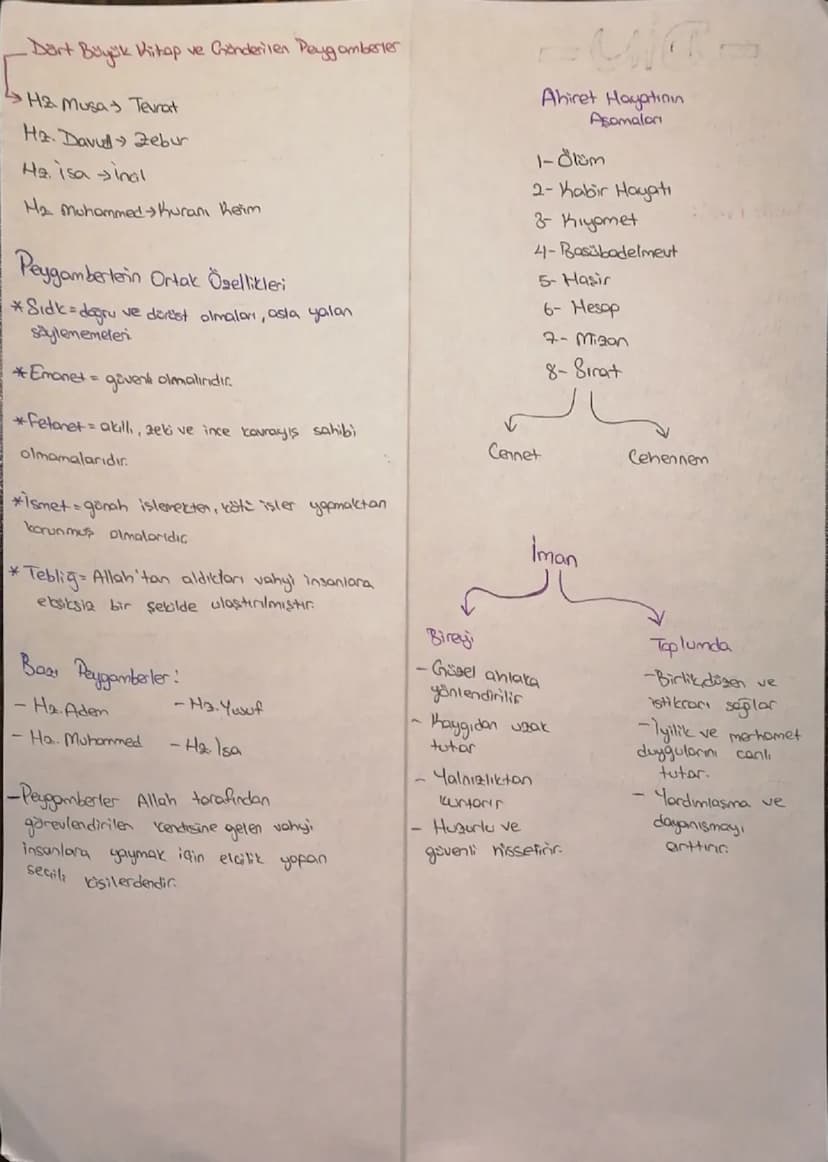 Dört Büyük Kitap ve Gönderilen Peygamberler
Hz. Musa → Tevrat
Hz. Davud → Zebur
Hz. İsa → İncil
Hz Muhammed → Kuranı Kerim
Peygamberlein Ortak Özellikleri
* Sıdk = doğru ve dürüst olmaları, asla yalan
söylememeleri
* Emanet = güvenli olmalırıdır.
* Fetanet = akıllı, zeki ve ince kavrayış sahibi
olmamalarıdır.
* İsmet = günah işlemekten, kötü işler yapmaktan
korunmuş olmalarıdır
* Tebliğ = Allah'tan aldıkları vahyi insanlara
eksiksiz bir şekilde ulaştırılmıştır.
Bazı Peygamberler:
- Hz. Adem - Hz. Yusuf
- Hz. Muhammed - Hz İsa
- Peygamberler Allah tarafından
görevlendirilen kendisine gelen vahyi
insanlara yaymak için elçilik yapan
seçili kişilerdendir.
- DİN -
Ahiret Hayatının
Aşamaları
1- Ölüm
2- Kabir Hayatı
3- Kıyamet
4- Basübadelmevt
5- Haşir
6- Hesap
7- Mizan
8- Sırat
Cennet Cehennem
İman
Bireyi
- Güzel ahlaka
yönlendirilir
- Kaygıdan uzak
tutar
- Yalnızlıktan
kurtarır
- Huzurlu ve
güvenli hissetirir.
Toplumda
- Birlik, düzen ve
istikrarı sağlar
- İyilik ve merhamet
duygularını canlı
tutar.
- Yardımlaşma ve
dayanışmayı
arttırır.